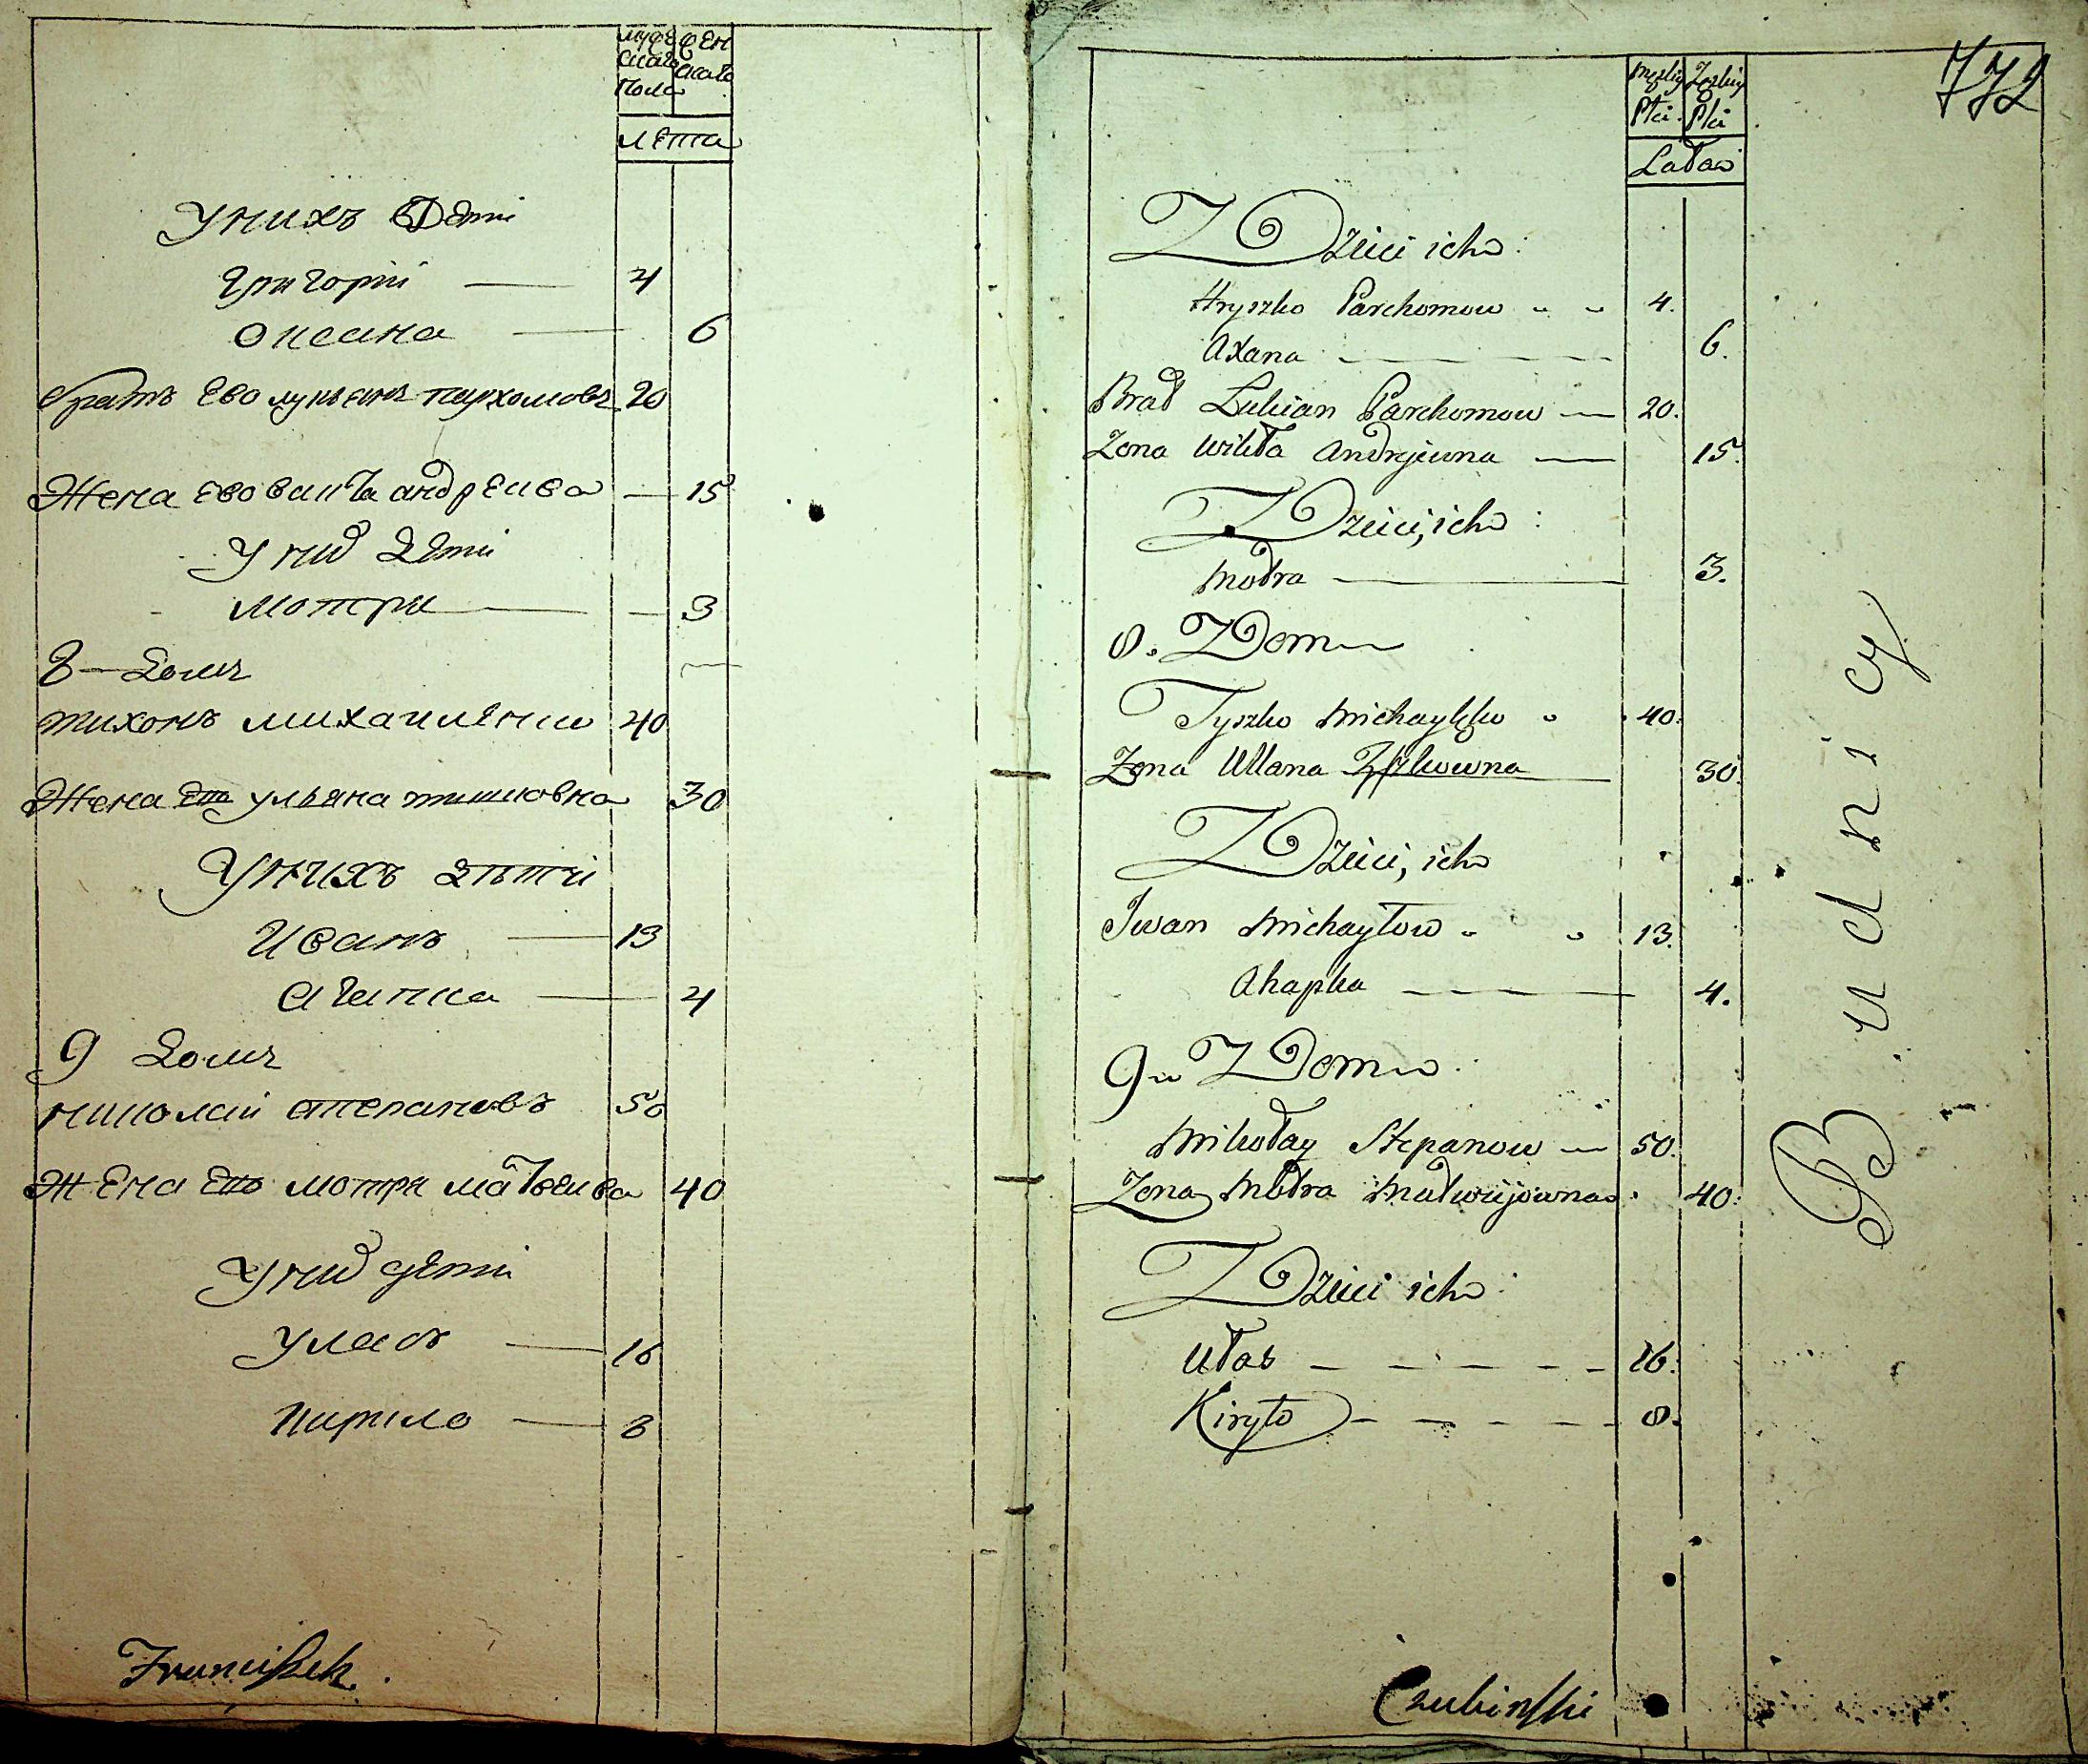 мужеска женска
пола
лета
У нихъ Дети
Григорій 4
Оксана 6
братъ Его лукьянъ пархомовъ 20
Жена Его Вивта андреива 15
У них Дети
Мотря 3
8 Домъ
тихонъ михаиленко 40
Жена Его ульяна тишковна 30
У нихъ Дѣти
Иванъ 13
Агапка 4
9 Домъ
николай степановъ 50
Жена Его мотря матвеива 40
У них дети
Уласъ 16
Кирило 8
Franciszek
772
męzkiy Żęzkiy
Płci Płci
Latai
Dzieci ich:
Hryszko Parchomow 4.
Axana 6.
Brat Lukian Parchomow 20.
Zona Wikta Andryiwna 15.
Dzieci, ich:
Motra 3.
8. Dom
Tyszko Michayłko 40.
Zona Ullana Tyszkowna 30.
Dzieci, ich
Iwan Michayłow 13.
Ahapka 4.
9 Dom
Mikołay Stepanow 50.
Zona Motra Matwijowna 40.
Dzieci ich:
Ułas 16.
Kiryło 8.
Budnicy
Czubinski